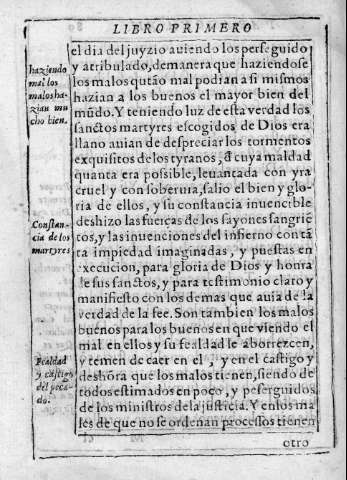 LIBRO PRIMERO
el dia del juyzio auiendo los perseguido
y atribulado, demanera que haziendose
los malos quãto mal podian a si mismos
hazian a los buenos el mayor bien del
mũdo. Y teniendo luz de esta verdad los
sanctos martyres escogidos de Dios era
llano auian de despreciar los tormentos
exquisitos de los tyranos, d̃ cuya maldad
quanta era possible, leuantada con yra
cruel y con soberuia, salio el bien y glo-
ria de ellos, y su constancia inuencible
deshizo las fuerças de los sayones sangriẽ
tos, y las inuenciones del infierno con tã
ta impiedad imaginadas, y puestas en
execucion, para gloria de Dios y honra
de sus sanctos, y para testimonio claro y
manifiesto con los demas que auia de la
verdad de la fee. Son tambien los malos
buenos para los buenos en que viendo el
mal en ellos y su fealdad le aborrezcen,
y temen de caer en el, y en el castigo y
deshõra que los malos tienen, siendo de
todos estimados en poco, y perseguidos
de los ministros de la justicia. Y en los ma
les de que no se ordenan processos tienen
otro
haziendo
mal los
malos ha-
zian mu
cho bien.
Constan-
cia de los
martyres
Fealdad
y castigo
del peca-
do.